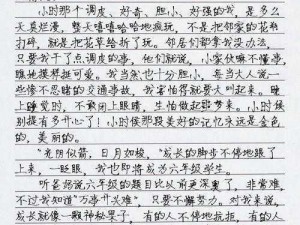 小时那个调皮、好奇、胆小、好强的我，是多么
天真烂漫，整天嘻嘻哈哈地疯玩，不是把邻家的花瓶
打碎，就是把花草给折了玩。邻居们都拿我没办法，
只要我干了点调皮的事，他们就说，小家伙嘛不懂事
瞧她摸得挺可爱。我当然也十分胆小，每当大人说一
些像不思睹的交通事故，我害怕得就要大叫起来。晚
上睡觉时，不敢闭上眼睛，生怕做起噩梦来。小时候
别提有多开心了！小时候那段美好的记忆永远是金色
的，美丽的。
“光阴似箭，日月如梭，”成长的脚步不停地跟了
上来，一眨眼，我也即将成为六年级学生。
听爸妈说六年级的题目比以前更深奥了，非常难，
不过我知道“万事开头难”，只要不懈努力。对我来说，
成长就像一颗神秘果子，有的人不停地抗拒，有的人